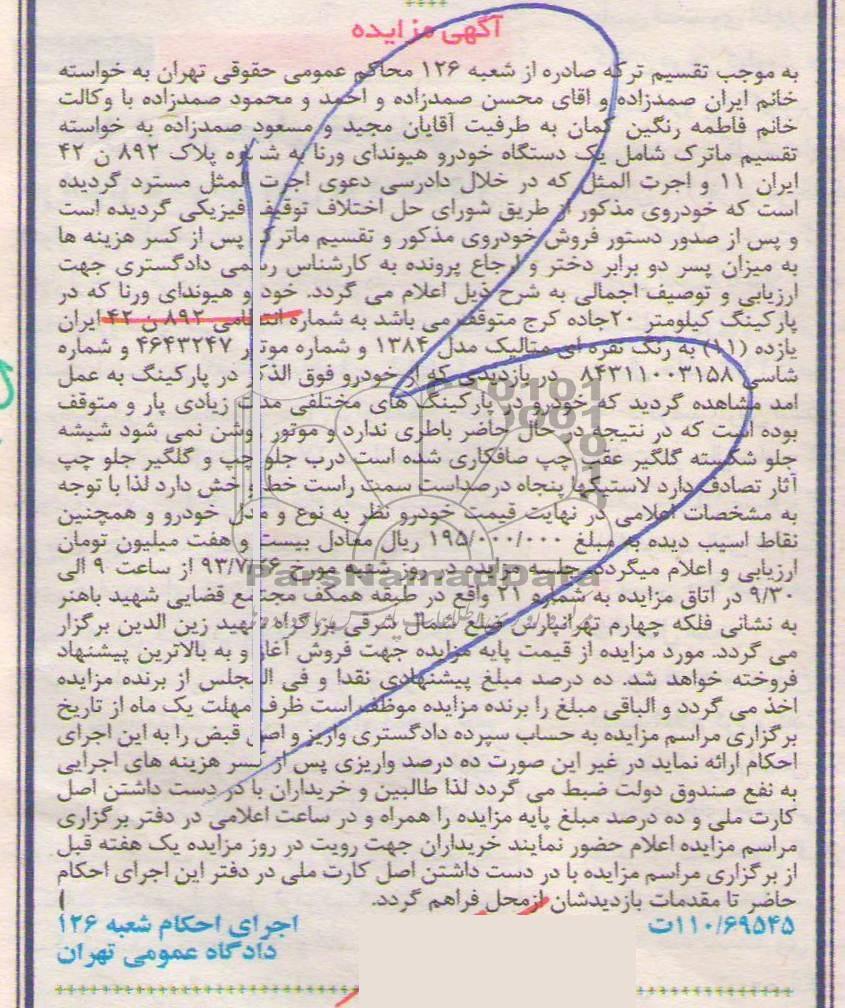 آگهی مزایده
به موجب تقسیم ترکه صادره از شعبه ۱۲۶ محاکم عمومی حقوقی تهران به خواسته
خانم ایران صمدزاده و اقای محسن صمدزاده و احمد و محمود صمدزاده با وکالت
خانم فاطمه رنگین کمان به طرفیت آقایان مجید و مسعود صمدزاده به خواسته
تقسیم ماترک شامل یک دستگاه خودرو هیوندای ورنا به شماره پلاک ۸۹۲ ن ۴۲
ایران ۱۱ و اجرت المثل که در خلال دادرسی دعوی اجرت المثل مسترد گردیده
است که خودروی مذکور از طریق شورای حل اختلاف توقیف فیزیکی گردیده است
و پس از صدور دستور فروش خودروی مذکور و تقسیم ماترک پس از کسر هزینه ها
به میزان پسر دو برابر دختر و ارجاع پرونده به کارشناس رسمی دادگستری جهت
ارزیابی و توصیف اجمالی به شرح ذیل اعلام می گردد. خودرو هیوندای ورنا که در
پارکینگ کیلومتر ۲۰جاده کرج متوقف می باشد به شماره انتظامی ۸۹۲ ن ۴۲ ایران
یازده (۱۱) به رنگ نقره ای متالیک مدل ۱۳۸۴ و شماره موتور ۴۶۴۳۲۴۷ و شماره
شاسی ۸۴۳۱۱۰۰۳۱۵۸ در بازدیدی که از خودرو فوق الذکر در پارکینگ به عمل
امد مشاهده گردید که خودرو در پارکینگ های مختلفی مدت زیادی پار و متوقف
بوده است که در نتیجه در حال حاضر باطری ندارد و موتور روشن نمی شود شیشه
جلو شکسته گلگیر عقب چپ صافکاری شده است درب جلو چپ و گلگیر جلو چپ
آثار تصادف دارد لاستیکها پنجاه درصداست سمت راست خط و خش دارد لذا با توجه
به مشخصات اعلامی در نهایت قیمت خودرو نظر به نوع و مدل خودرو و همچنین
نقاط اسیب دیده به مبلغ ۱۹۵/۰۰۰/۰۰۰ ریال معادل بیست و هفت میلیون تومان
ارزیابی و اعلام میگردد جلسه مزایده در روز شنبه مورخ ۹۳/۷/۲۶ از ساعت ۹ الی
۹/۳۰ در اتاق مزایده به شماره ۲۱ واقع در طبقه همکف مجتمع قضایی شهید باهنر
به نشانی فلکه چهارم تهرانپارس ضلع شمال شرقی بزرگراه شهید زین الدین برگزار
می گردد. مورد مزایده از قیمت پایه مزایده جهت فروش آغاز و به بالاترین پیشنهاد
فروخته خواهد شد. ده درصد مبلغ پیشنهادی نقدا و فی المجلس از برنده مزایده
اخذ می گردد و الباقی مبلغ را برنده مزایده موظف است ظرف مهلت یک ماه از تاریخ
برگزاری مراسم مزایده به حساب سپرده دادگستری واریز و اصل قبض را به این اجرای
احکام ارائه نماید در غیر این صورت ده درصد واریزی پس از کسر هزینه های اجرایی
به نفع صندوق دولت ضبط می گردد لذا طالبین و خریداران با در دست داشتن اصل
کارت ملی و ده درصد مبلغ پایه مزایده را همراه و در ساعت اعلامی در دفتر برگزاری
مراسم مزایده اعلام حضور نمایند خریداران جهت رویت در روز مزایده یک هفته قبل
از برگزاری مراسم مزایده با در دست داشتن اصل کارت ملی در دفتر این اجرای احکام
حاضر تا مقدمات بازدیدشان ازمحل فراهم گردد.
۱۱۰/۶۹۵۴۵ت
اجرای احکام شعبه ۱۲۶
دادگاه عمومی تهران
ParsNamadData